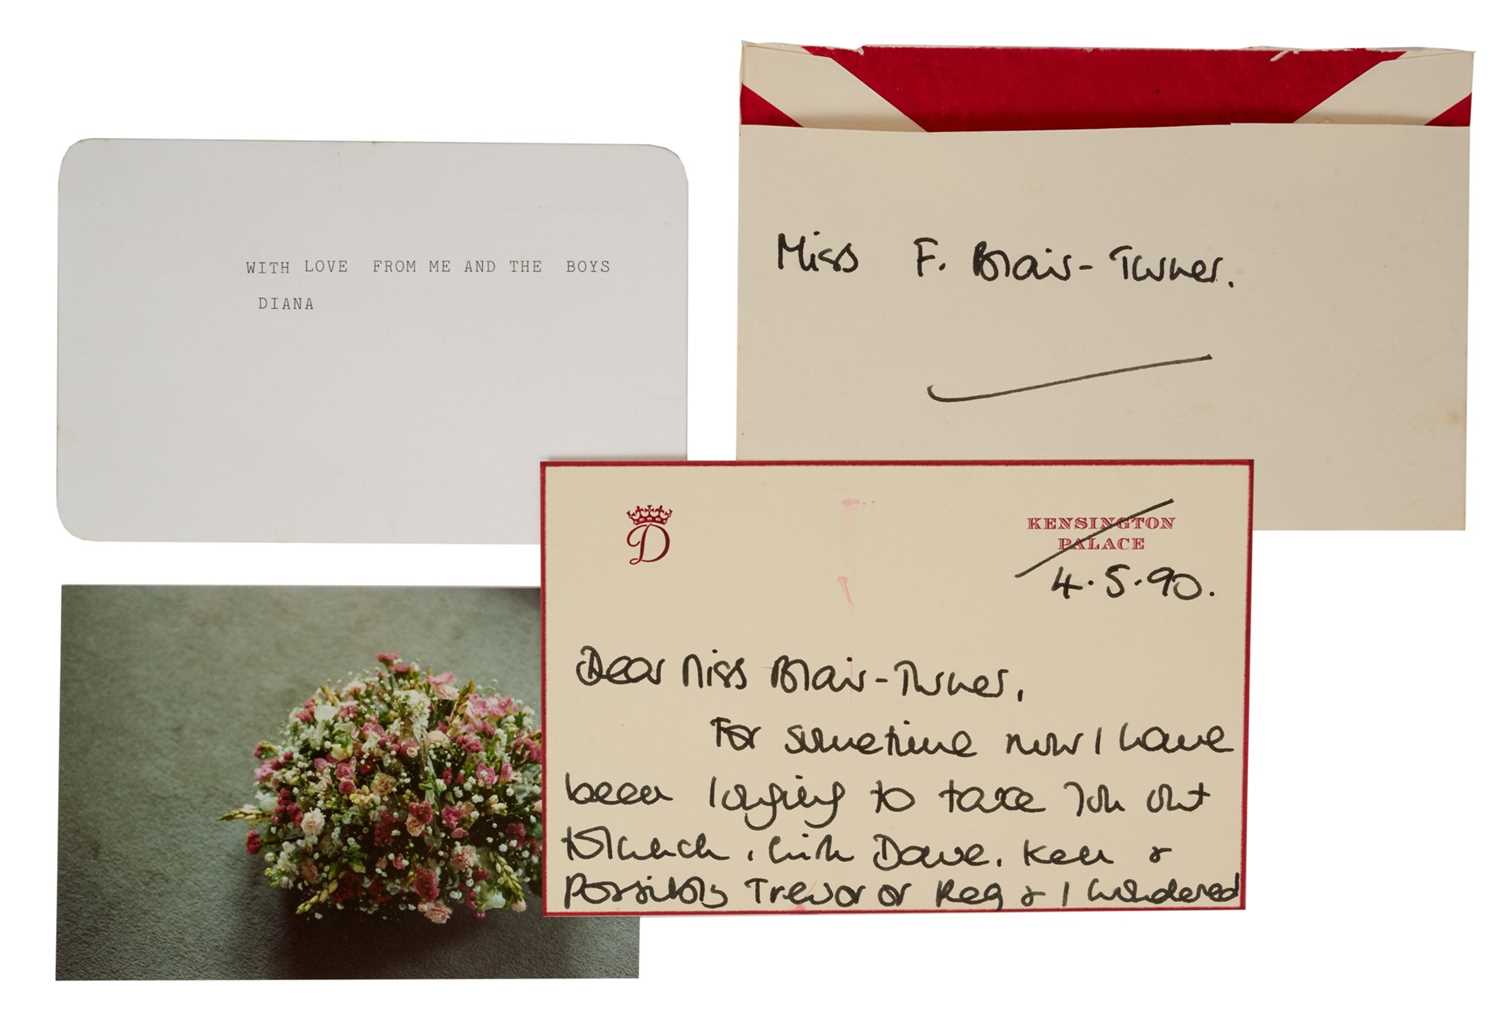 WITH LOVE FROM ME AND THE BOYS
DIANA
Miss F. Blair-Turner.
D
KENSINGTON
PALACE
4.5.90.
Dear Miss Blair-Turner,
For sometime now I have
been longing to take you out
to lunch, with Dave, Ken &
possibly Trevor or Reg & I wondered